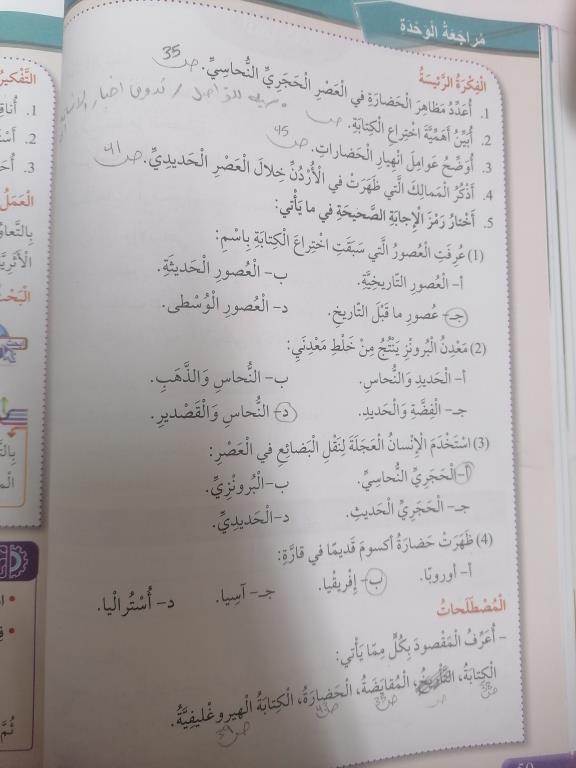 مُراجَعَةُ الْوَحْدَةِ
الْفِكْرَةُ الرَّئيسَةُ
1. أُعَدِّدُ مَظاهِرَ الْحَضارَةِ في الْعَصْرِ الْحَجَرِيِّ النُّحاسِيِّ. ص35
2. أُبَيِّنُ أَهَمِّيَّةَ اخْتِراعِ الْكِتابَةِ. ص
3. أُوَضِّحُ عَوامِلَ انْهِيارِ الْحَضاراتِ. ص45
4. أَذْكُرُ الْمَمالِكَ الَّتي ظَهَرَتْ في الْأُرْدُنِّ خِلالَ الْعَصْرِ الْحَديدِيِّ. ص41
5. أَخْتارُ رَمْزَ الْإِجابَةِ الصَّحيحَةِ في ما يَأْتي:
(1) عُرِفَتِ الْعُصورُ الَّتي سَبَقَتِ اخْتِراعَ الْكِتابَةِ بِاسْمِ:
أ- الْعُصورِ التّاريخِيَّةِ. ب- الْعُصورِ الْحَديثَةِ.
جـ- عُصورِ ما قَبْلَ التّاريخِ. د- الْعُصورِ الْوُسْطى.
(2) مَعْدِنُ الْبُرونْزِ يَنْتُجُ مِنْ خَلْطِ مَعْدِنَيِ:
أ- الْحَديدِ وَالنُّحاسِ. ب- النُّحاسِ وَالذَّهَبِ.
جـ- الْفِضَّةِ وَالْحَديدِ. د- النُّحاسِ وَالْقَصْديرِ.
(3) اسْتَخْدَمَ الْإِنْسانُ الْعَجَلَةَ لِنَقْلِ الْبَضائِعِ في الْعَصْرِ:
أ- الْحَجَرِيِّ النُّحاسِيِّ. ب- الْبُرونْزِيِّ.
جـ- الْحَجَرِيِّ الْحَديثِ. د- الْحَديدِيِّ.
(4) ظَهَرَتْ حَضارَةُ أكسومَ قَديمًا في قارَّةِ:
أ- أوروبّا. ب- إِفْريقْيا. جـ- آسِيا. د- أُسْتُرالْيا.
الْمُصْطَلَحاتُ
- أُعَرِّفُ الْمَقْصودَ بِكُلٍّ مِمّا يَأْتي:
الْكِتابَةُ، التَّاريخُ، الْمُقايَضَةُ، الْحَضارَةُ، الْكِتابَةُ الْهيروغْليفِيَّةُ.
التَّفْكيرُ
1. أُناقِ
2.
3.
الْعَمَلُ
بِالتَّعاوُ
الْأَثَرِيَّ
الْبَحْثُ